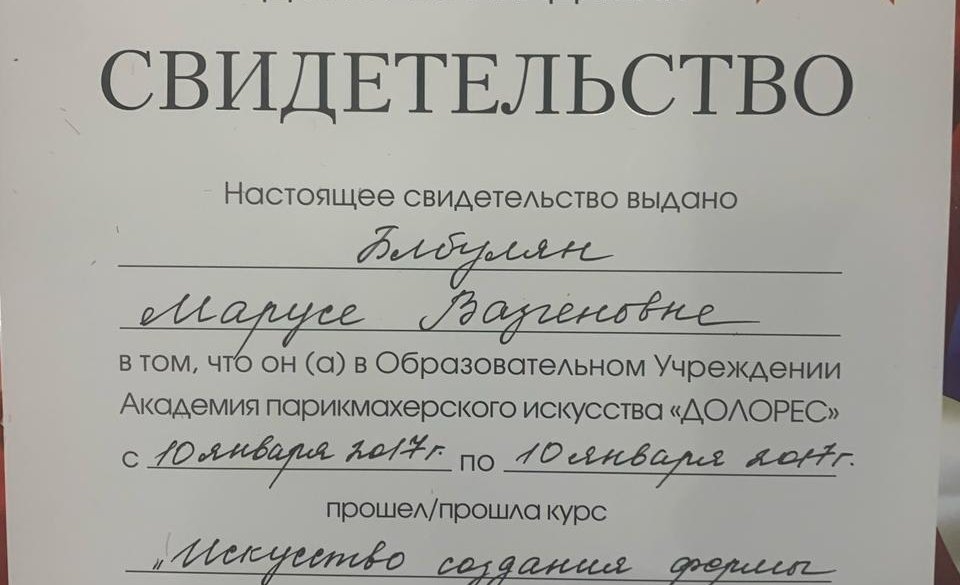 СВИДЕТЕЛЬСТВО
Настоящее свидетельство выдано
Блбулян
Марусе Вазгеновне
в том, что он (а) в Образовательном Учреждении
Академия парикмахерского искусства «ДОЛОРЕС»
с 10 января 2017г. по 10 января 2017г.
прошел/прошла курс
„Искусство создания формы